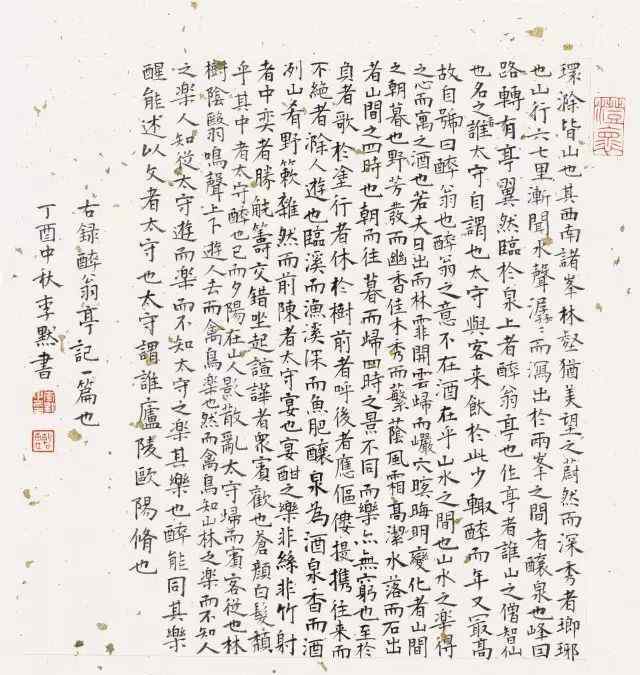 環滁皆山也其西南諸峯林壑猶美望之蔚然而深秀者瑯琊
也山行六七里漸聞水聲潺〻而瀉出於兩峯之間者釀泉也峰回
路轉有亭翼然臨於泉上者醉翁亭也作亭者誰山之僧智仙
也名之者誰太守自謂也太守與客来飲於此少輒醉而年又最高
故自號曰醉翁也醉翁之意不在酒在乎山水之間也山水之樂得
之心而寓之酒也若夫日出而林霏開雲歸而巖穴暝晦明變化者山間
之朝暮也野芳發而幽香佳木秀而繁蔭風霜高潔水落而石出
者山間之四時也朝而往暮而歸四時之景不同而樂亦無窮也至於
負者歌於塗行者休於樹前者呼後者應傴僂提攜往来而
不絶者滁人遊也臨溪而漁溪深而魚肥釀泉為酒泉香而酒
洌山肴野簌雜然而前陳者太守宴也宴酣之樂非絲非竹射
者中奕者勝觥籌交錯坐起諠譁者衆賓歡也蒼顔白髮頽
乎其中者太守醉也已而夕陽在山人影散亂太守歸而賓客從也林
樹陰翳鳴聲上下遊人去而禽鳥樂也然而禽鳥知山林之樂而不知人
之樂人知從太守遊而樂而不知太守之樂其樂也醉能同其樂
醒能述以文者太守也太守謂誰廬陵歐陽脩也
右録醉翁亭記一篇也
丁酉中秋李默書